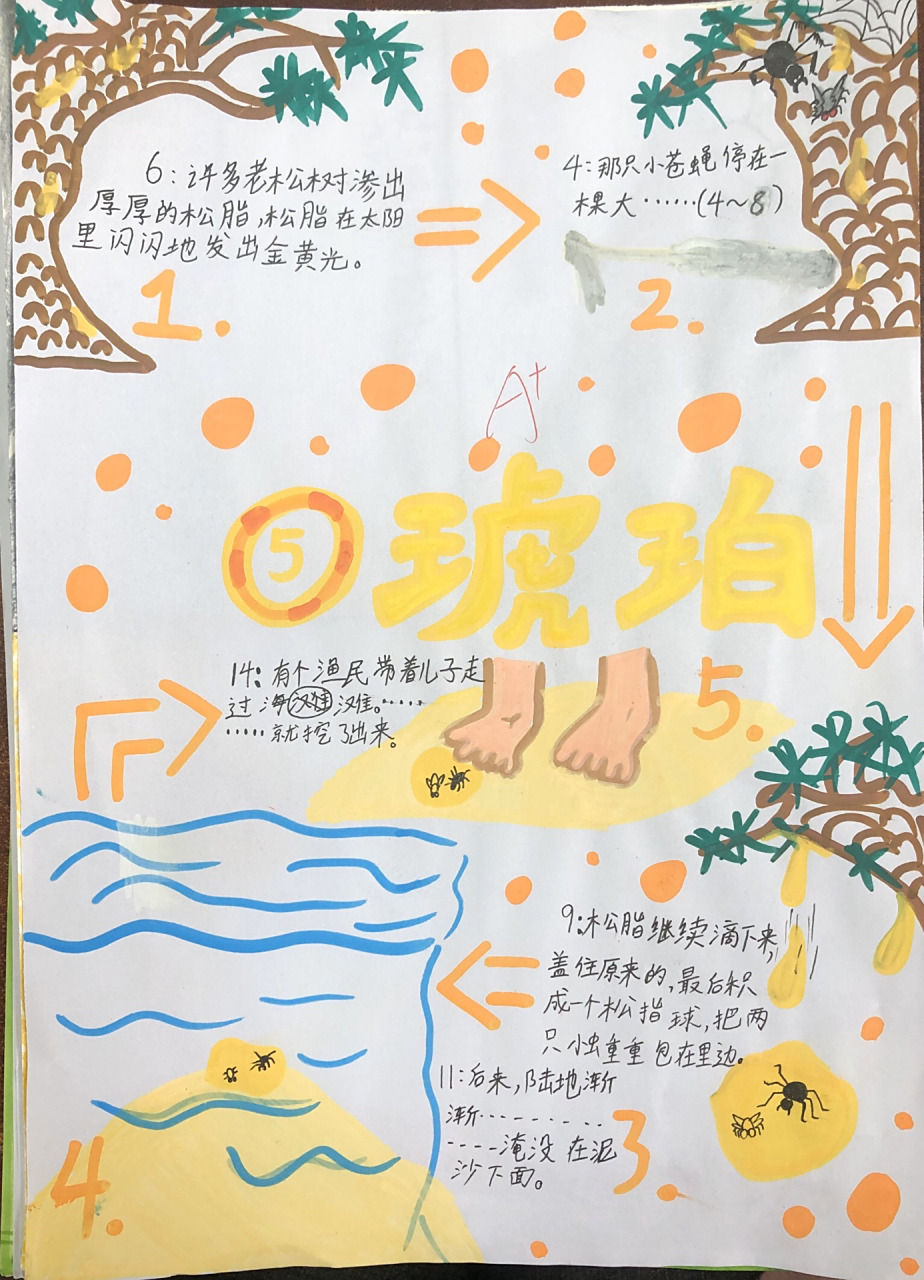 6：许多老松树渗出
厚厚的松脂，松脂在太阳
里闪闪地发出金黄光。
1.
4：那只小苍蝇停在一
棵大……(4～8)
2.
A+
5 琥珀
14：有个渔民带着儿子走
过海滩。……
……就挖了出来。
5.
9：松脂继续滴下来，
盖住原来的，最后积
成一个松指球，把两
只小虫重重包在里边。
3.
11：后来，陆地渐
渐--------
----淹没在泥
沙下面。
4.